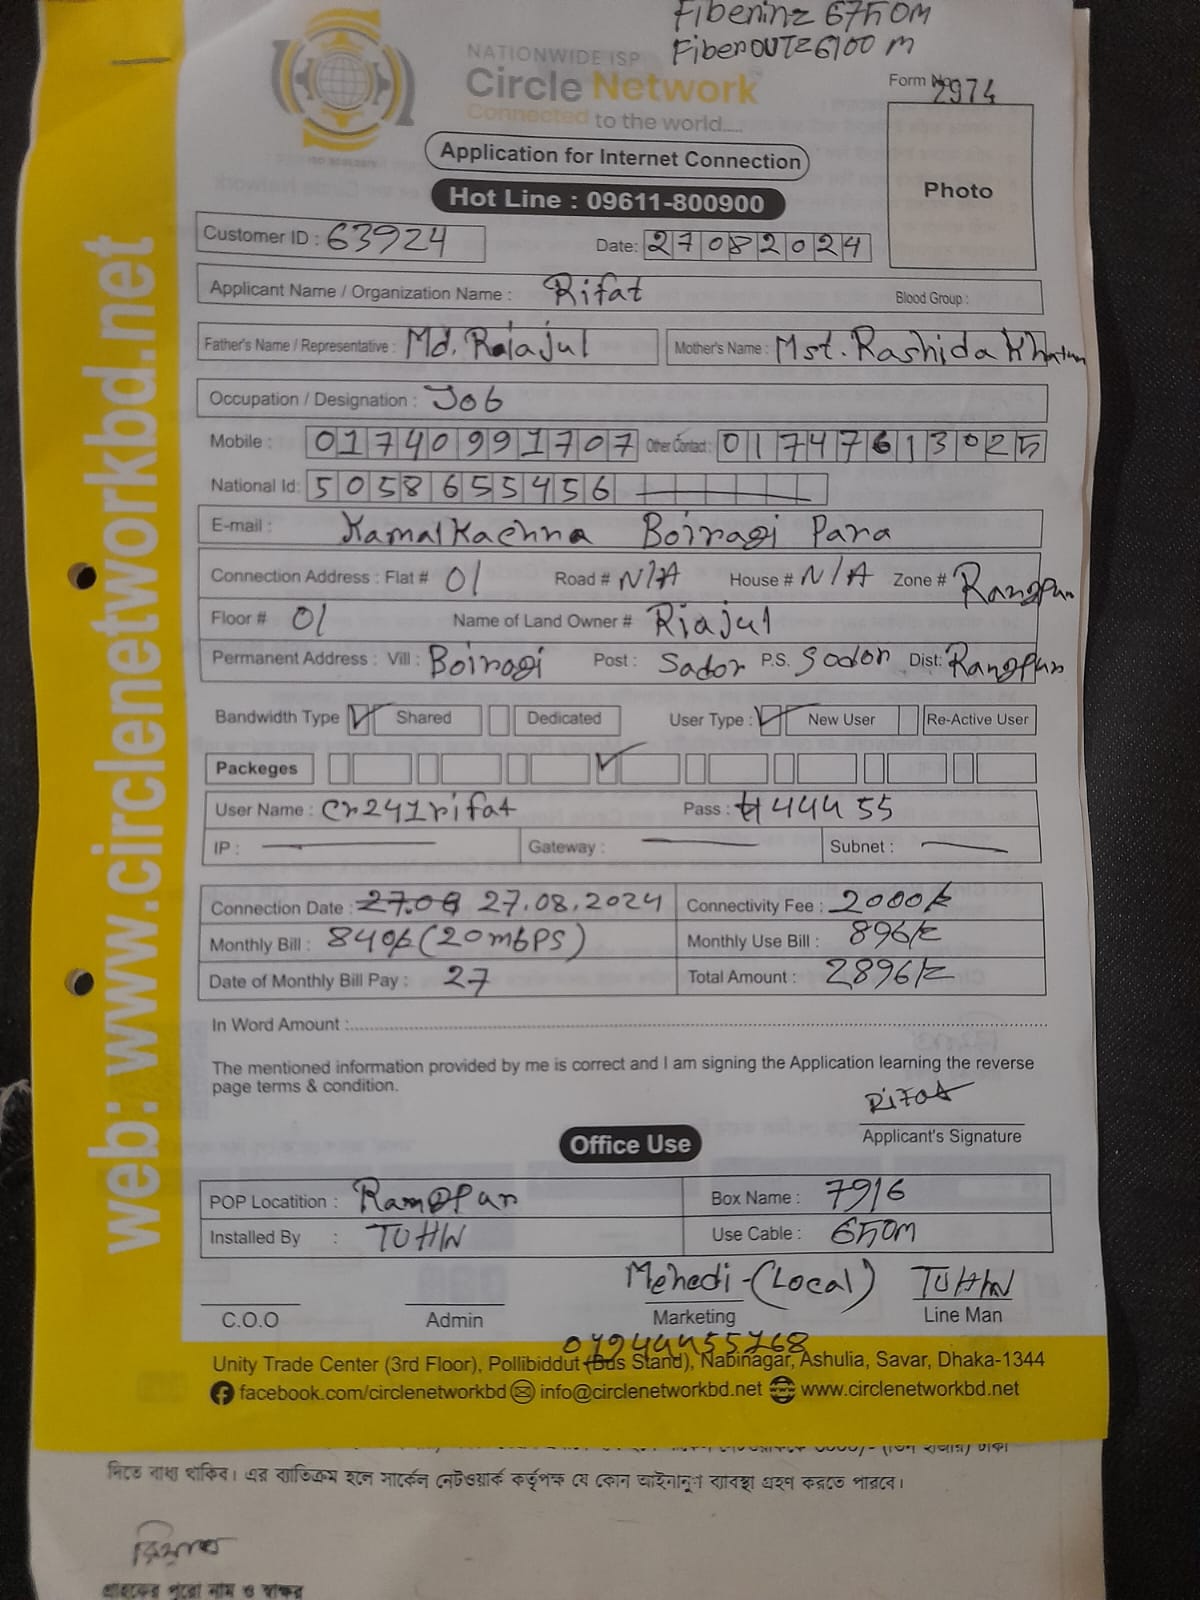 Fiberinz 6750M
FiberOUTz6100 M
NATIONWIDE ISP
Circle Network
Connected to the world.....
Form No 2974
Application for Internet Connection
Photo
Hot Line : 09611-800900
Customer ID : 63924 Date: 27082024
Applicant Name / Organization Name : Rifat Blood Group :
Father's Name / Representative : Md. Raiajul Mother's Name : Mst. Rashida Khatun
Occupation / Designation : Job
Mobile : 01740991707 Other Contact : 01747613025
National Id: 5058655456
E-mail : Kamal Kachna Boiragi Para
Connection Address : Flat # 01 Road # N/A House # N/A Zone # Rangpur
Floor # 01 Name of Land Owner # Riajul
Permanent Address : Vill : Boiragi Post : Sador P.S. Sodor Dist: Rangpur
Bandwidth Type Shared Dedicated User Type : New User Re-Active User
Packeges
User Name : Cr241rifat Pass : 444455
IP : Gateway : Subnet :
Connection Date : 27.08 27.08.2024 Connectivity Fee : 2000/=
Monthly Bill : 840/= (20mbps) Monthly Use Bill : 896/=
Date of Monthly Bill Pay : 27 Total Amount : 2896/=
In Word Amount :
The mentioned information provided by me is correct and I am signing the Application learning the reverse
page terms & condition.
Rifat
Applicant's Signature
Office Use
POP Locatition : Rangpur Box Name : 7916
Installed By : TUHIN Use Cable : 650M
Mehedi-(Local) TUHIN
C.O.O Admin Marketing Line Man
Unity Trade Center (3rd Floor), Pollibiddut (Bus Stand), Nabinagar, Ashulia, Savar, Dhaka-1344
facebook.com/circlenetworkbd info@circlenetworkbd.net www.circlenetworkbd.net
web: www.circlenetworkbd.net
দিতে বাধ্য থাকিব। এর ব্যতিক্রম হলে সার্কেল নেটওয়ার্ক কর্তৃপক্ষ যে কোন আইনানুগ ব্যাবস্থা গ্রহণ করতে পারবে।
গ্রাহকের পুরো নাম ও স্বাক্ষর